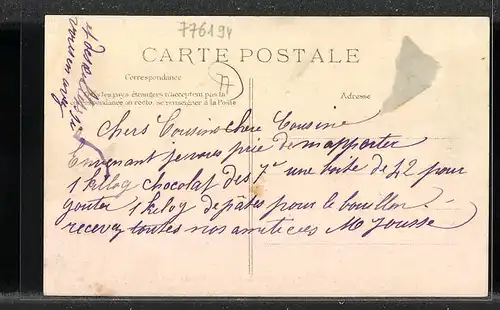 776194
CARTE POSTALE
Correspondance
Tous les pays étrangers n'acceptent pas la
correspondance au recto, se renseigner à la Poste
Adresse
A
Chers Cousins chère Cousine
En venant je vous prie de m'apporter
1 kilog chocolat des 7e une boite de 42 pour
gouter 1 kilog de pâtes pour le bouillon
recevez toutes nos amitiées M Jousse